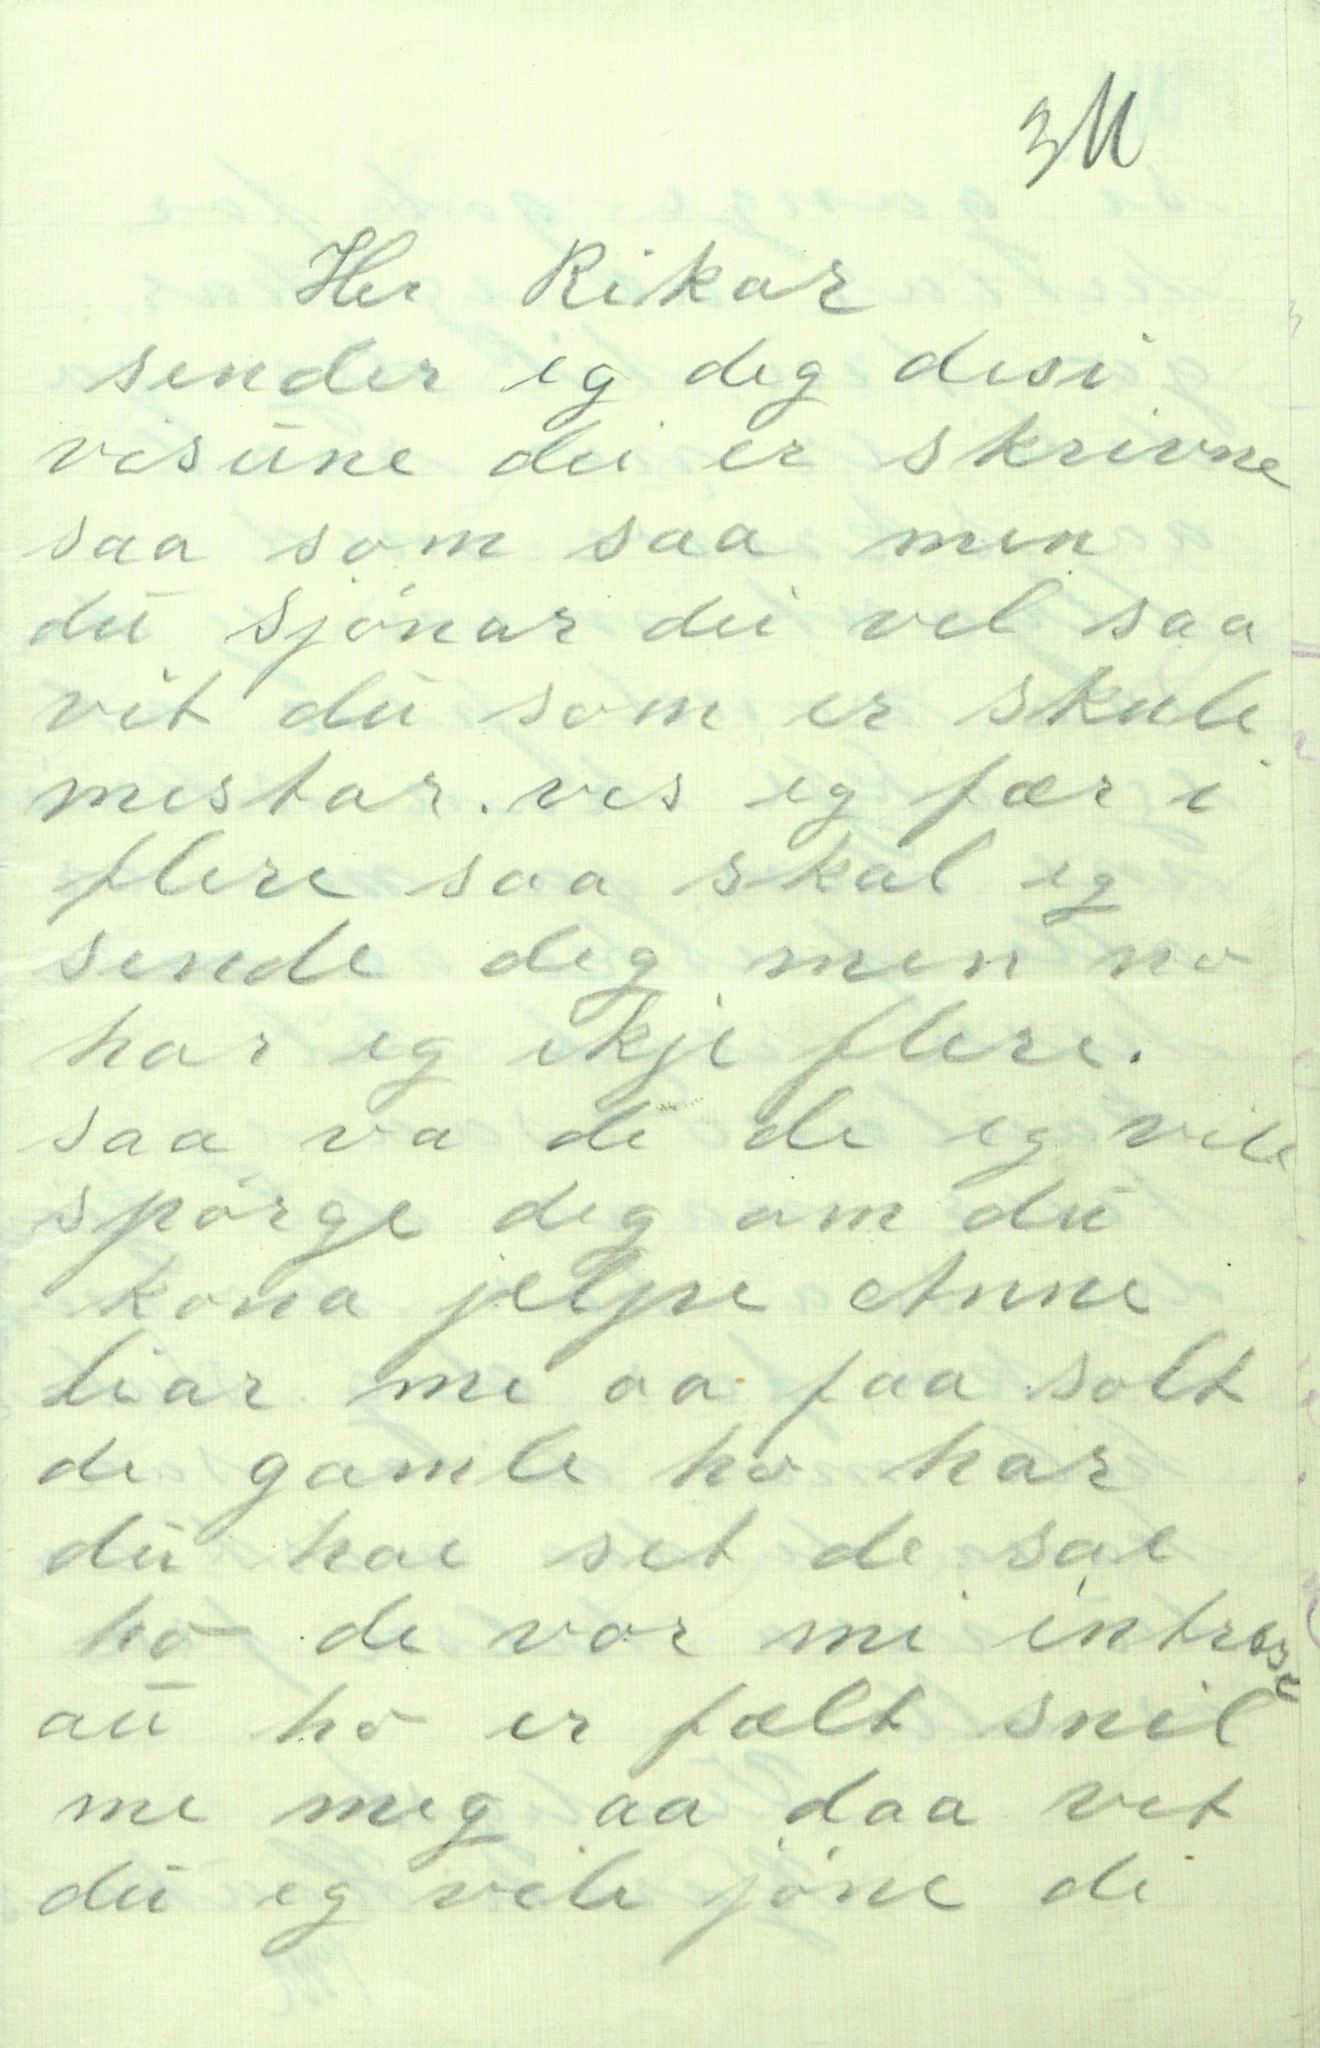 3M
Her Rikar
sender eg deg desi
visune dei er skrivne
saa som saa men
du sjónar dei vel saa
vit du som er skule
mestar. ves eg fær i
flere saa skal eg
sende deg men no
har eg ikje flere.
saa va de de eg vile
spórge deg om du
kona jelpe Anne
liar me aa faa solt
de gamle ho har
du hae set de sae
ho de var mi intrese
au ho er fælt snil
me meg aa daa vet
du eg vile jóne de